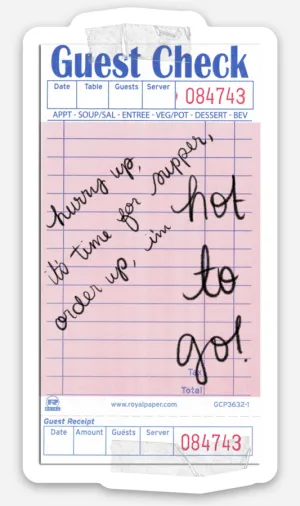 Guest Check
Date Table Guests Server 084743
APPT - SOUP/SAL - ENTREE - VEG/POT - DESSERT - BEV
hurry up,
it's time for supper,
order up, i'm
hot
to
go!
Tax
Total
www.royalpaper.com GCP3632-1
Guest Receipt
Date Amount Guests Server 084743